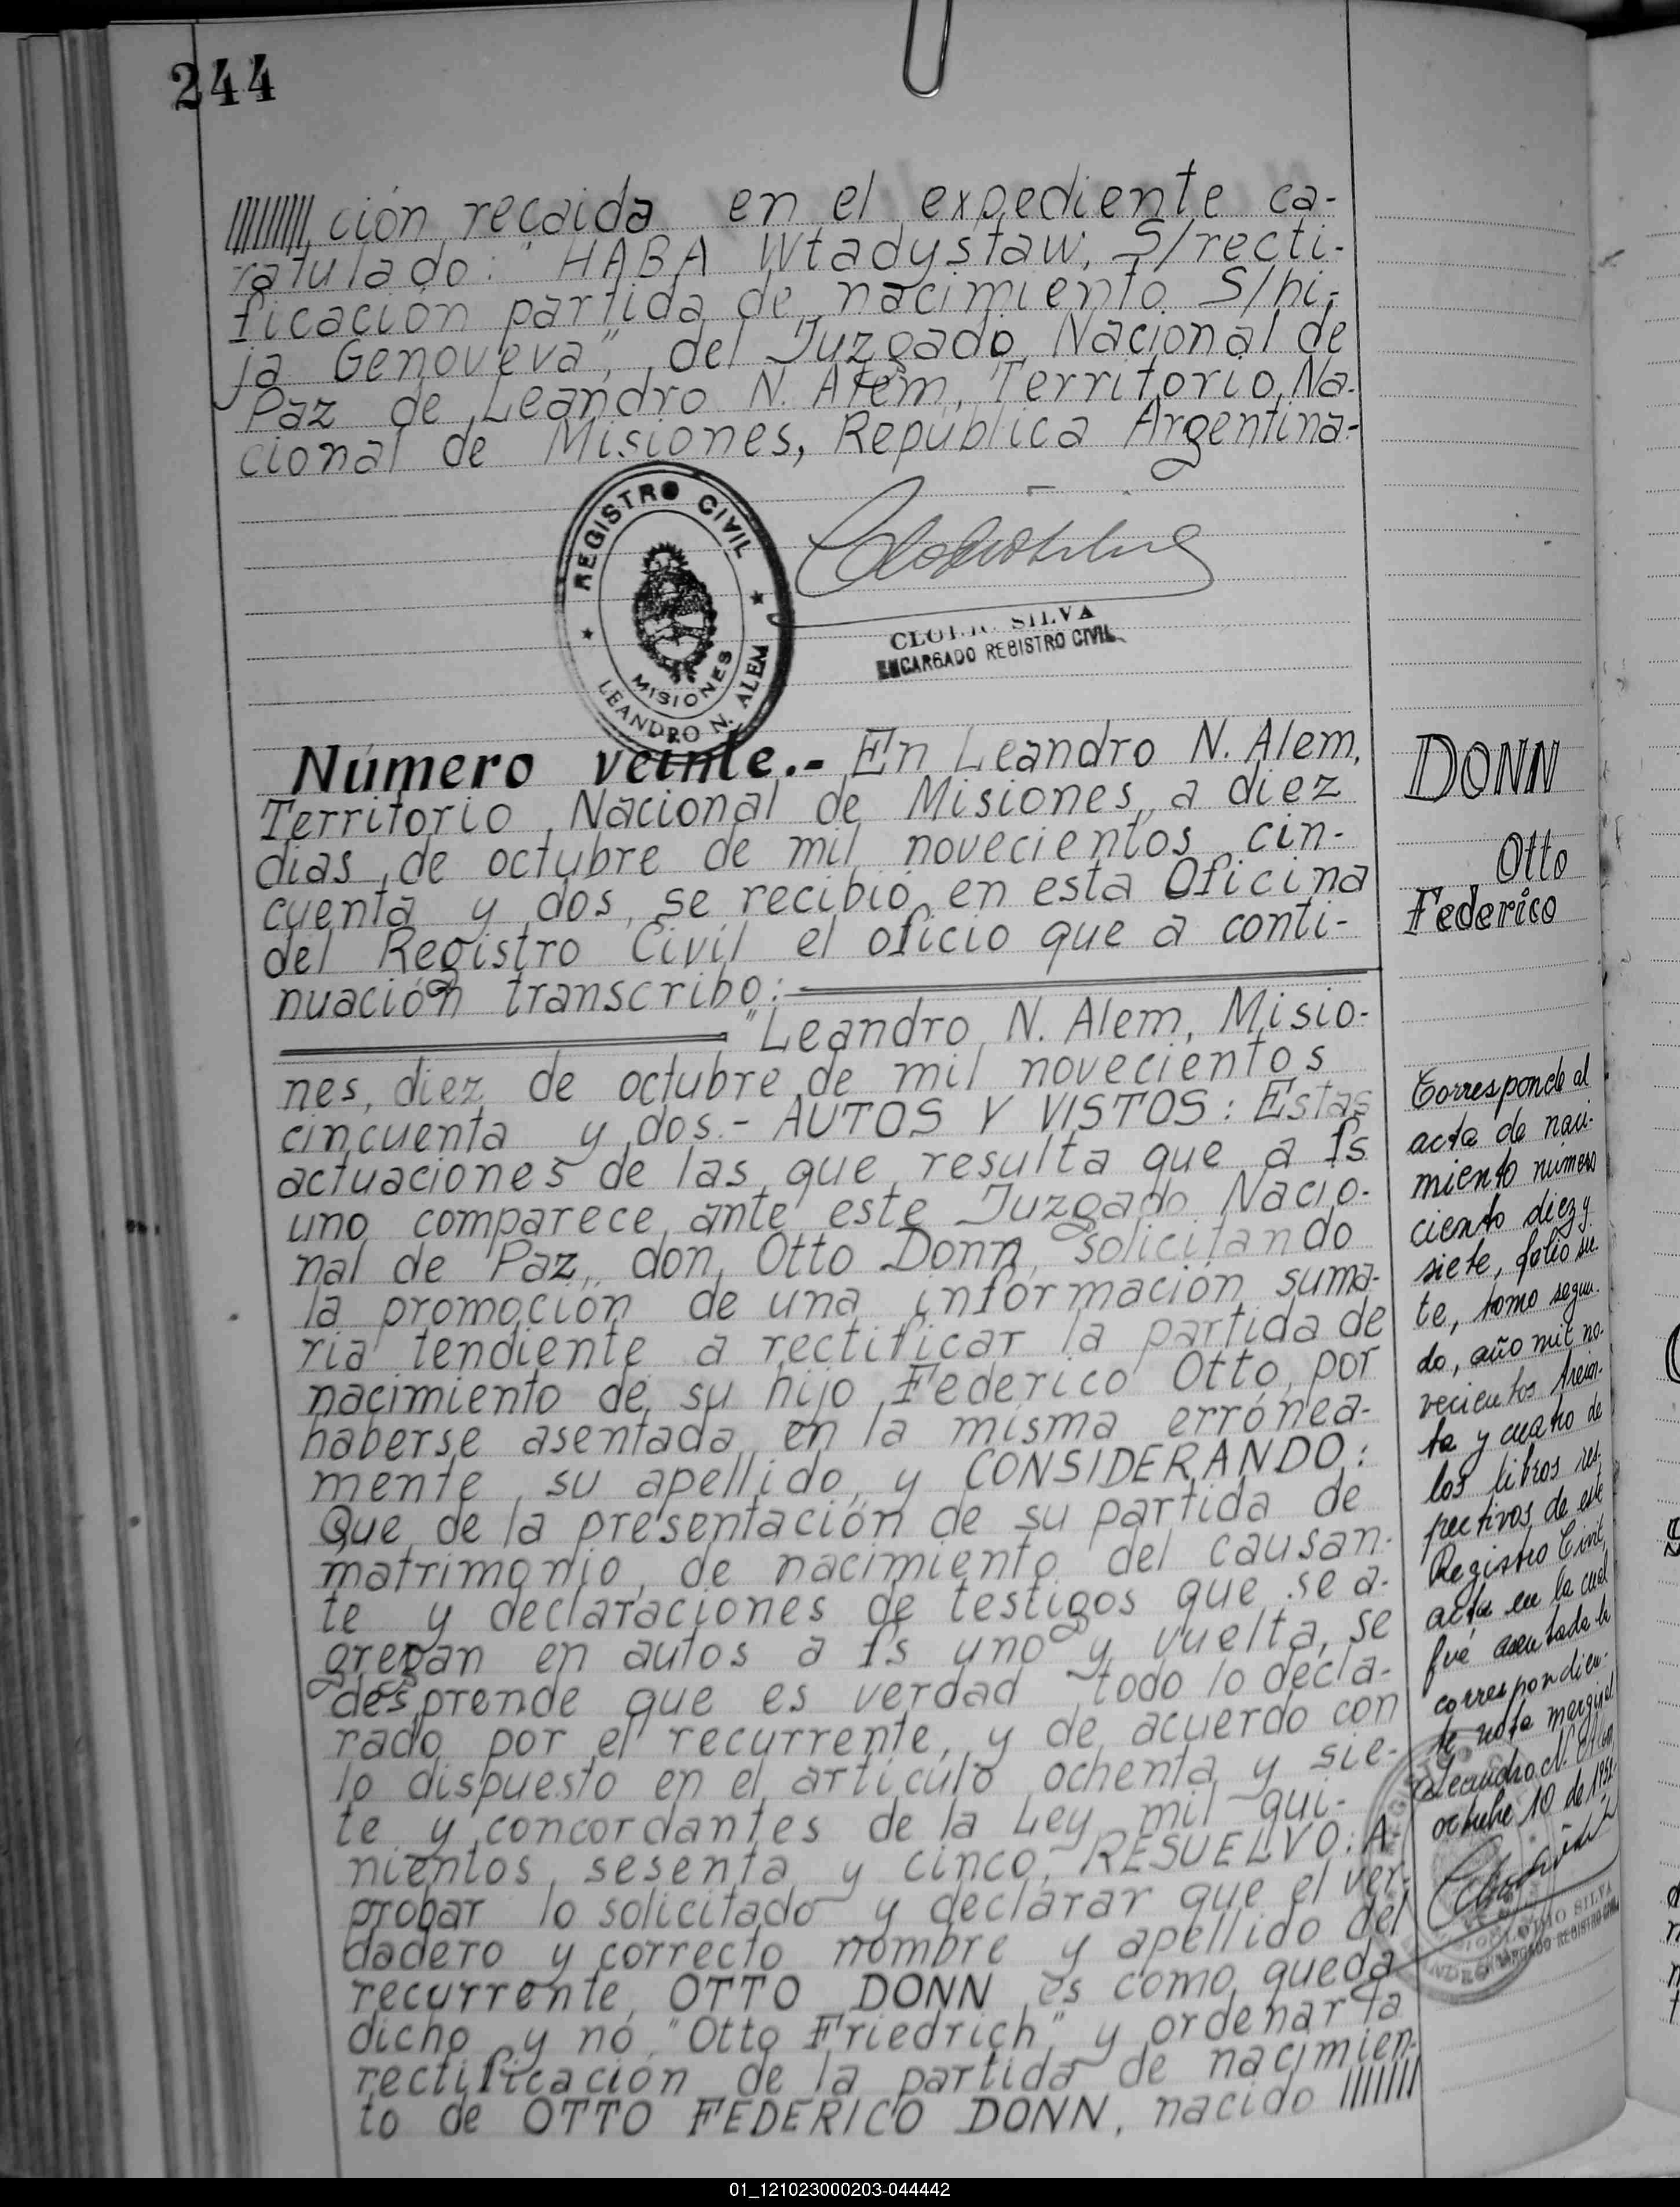 244
ción recaida en el expediente ca-
ratulado: "HABA Wtadystaw, S/recti-
ficación partida de nacimiento S/hi-
ja Genoveva", del Juzgado Nacional de
Paz de Leandro N. Alem, Territorio Na-
cional de Misiones, República Argentina-
REGISTRO CIVIL
MISIONES
LEANDRO N. ALEM
SILVA
ENCARGADO REGISTRO CIVIL
Número veinte.- En Leandro N. Alem,
Territorio Nacional de Misiones, a diez
dias de octubre de mil novecientos cin-
cuenta y dos, se recibió en esta Oficina
del Registro Civil el oficio que a conti-
nuación transcribo:
"Leandro N. Alem, Misio-
nes, diez de octubre de mil novecientos
cincuenta y dos.- AUTOS Y VISTOS: Estas
actuaciones de las que resulta que a fs
uno comparece ante este Juzgado Nacio-
nal de Paz, don Otto Donn, solicitando
la promoción de una información suma-
ria tendiente a rectificar la partida de
nacimiento de su hijo Federico Otto, por
haberse asentada en la misma errónea-
mente su apellido, y CONSIDERANDO:
Que de la presentación de su partida de
matrimonio, de nacimiento del causan-
te y declaraciones de testigos que se a-
gregan en autos a fs uno y vuelta, se
desprende que es verdad todo lo decla-
rado por el recurrente, y de acuerdo con
lo dispuesto en el artículo ochenta y sie-
te y concordantes de la Ley mil qui-
nientos sesenta y cinco, RESUELVO: A-
probar lo solicitado y declarar que el ver-
dadero y correcto nombre y apellido del
recurrente OTTO DONN es como queda
dicho y nó "Otto Friedrich" y ordenar la
rectificación de la partida de nacimien-
to de OTTO FEDERICO DONN, nacido
DONN
Otto
Federico
Corresponde al
acta de naci-
miento número
ciento diez y
siete, folio sie-
te, tomo segun-
do, año mil no-
vecientos trein-
ta y cuatro de
los libros res-
pectivos de este
Registro Civil,
acta en la cual
fué asentada la
correspondien-
te nota marginal
Leandro N. Alem,
octubre 10 de 1952.
SILVA
ENCARGADO REGISTRO CIVIL
01_121023000203-044442